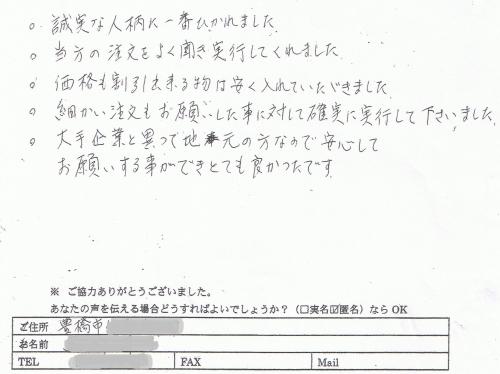 ○ 誠実な人柄に一番ひかれました
○ 当方の注文をよく聞き実行してくれました
○ 価格も割引出来る物は安く入れていただきました
○ 細かい注文もお願いした事に対して確実に実行して下さいました
○ 大手企業と異って地元の方なので安心して
お願いする事ができとても良かったです
※ ご協力ありがとうございました。
あなたの声を伝える場合どうすればよいでしょうか?(□実名☑匿名)なら OK
ご住所 豊橋市
お名前
TEL FAX Mail